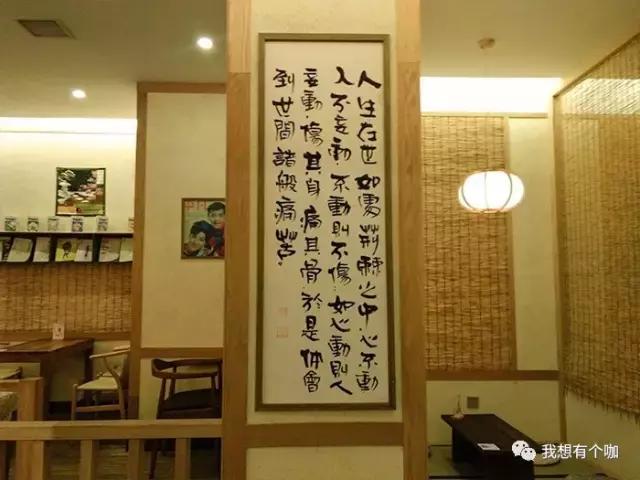 人生在世如處荊棘之中心不動
人不妄動不動則不傷如心動則人
妄動傷其身痛其骨於是体會
到世間諸般痛苦
我想有个咖